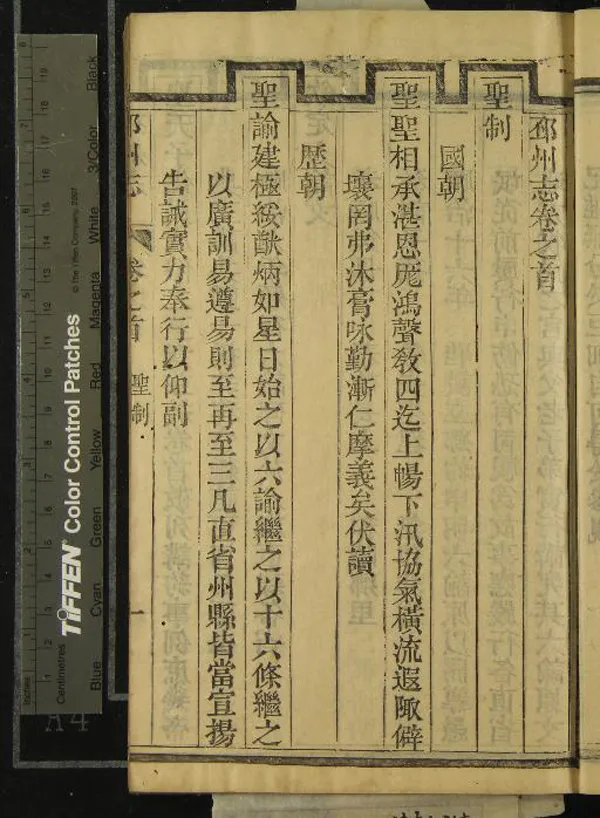 邳州志卷之首
聖制
國朝
聖聖相承湛恩厖鴻聲敎四迄上暢下汛協氣橫流遐陬僻
壤罔弗沐膏咏勤漸仁摩義矣伏讀
歷朝
聖諭建極綏猷炳如星日始之以六諭繼之以十六條繼之
以廣訓易遵易則至再至三凡直省州縣皆當宣揚
告誡實力奉行以仰副
邳州志 卷之首 聖制 一
Inches
Centimetres
TIFFEN Color Control Patches
© The Tiffen Company, 2007
Blue Cyan Green Yellow Red Magenta White 3/Color Black
A4